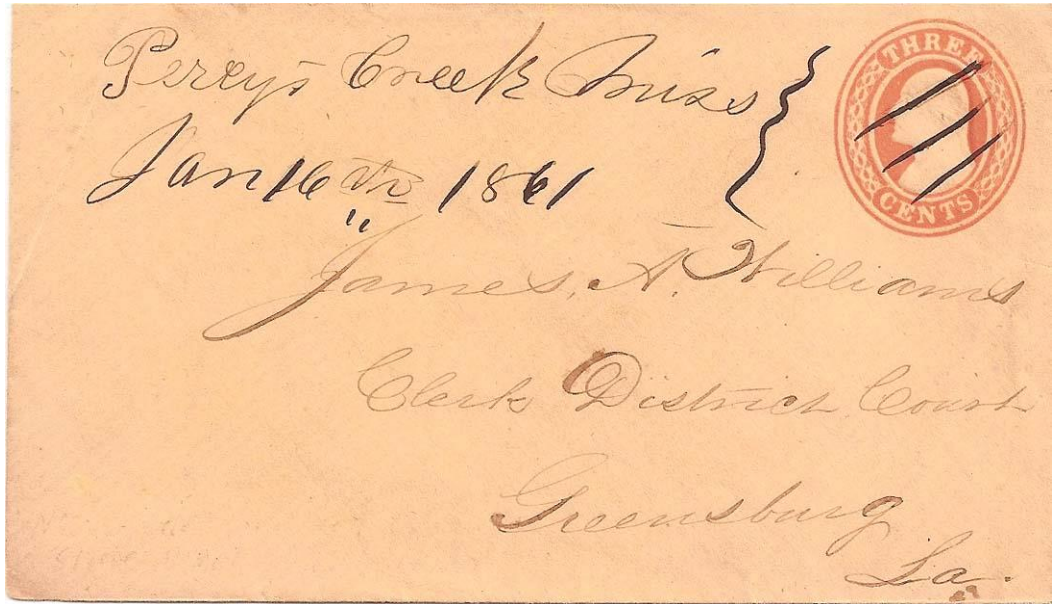 Percys Creek Miss
THREE
Jan 16th 1861
CENTS
James, A. Williams
Clerk District Court
Greensburg
La.